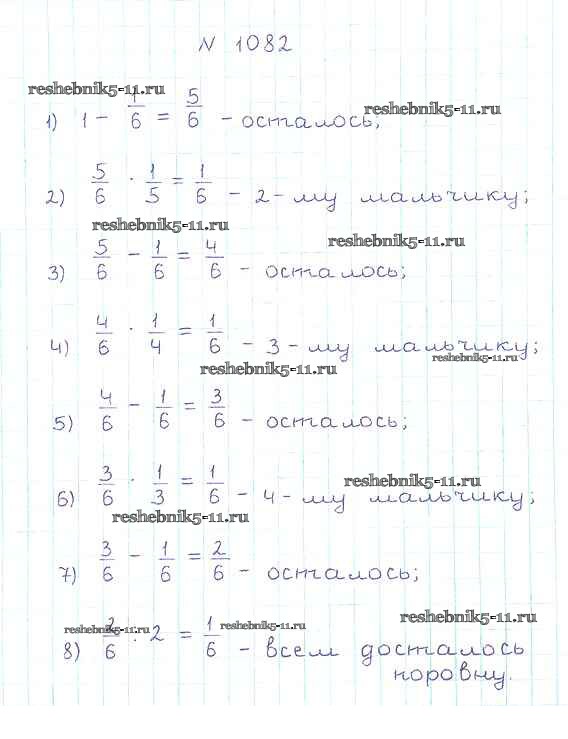 N 1082
reshebnik5-11.ru
1) 1 - 1/6 = 5/6 - осталось;
reshebnik5-11.ru
2) 5/6 · 1/5 = 1/6 - 2-му мальчику;
reshebnik5-11.ru
reshebnik5-11.ru
3) 5/6 - 1/6 = 4/6 - осталось;
4) 4/6 · 1/4 = 1/6 - 3-му мальчику;
reshebnik5-11.ru
reshebnik5-11.ru
5) 4/6 - 1/6 = 3/6 - осталось;
reshebnik5-11.ru
6) 3/6 · 1/3 = 1/6 - 4-му мальчику;
reshebnik5-11.ru
7) 3/6 - 1/6 = 2/6 - осталось;
reshebnik5-11.ru
reshebnik5-11.ru
reshebnik5-11.ru
8) 2/6 : 2 = 1/6 - всем досталось
поровну.